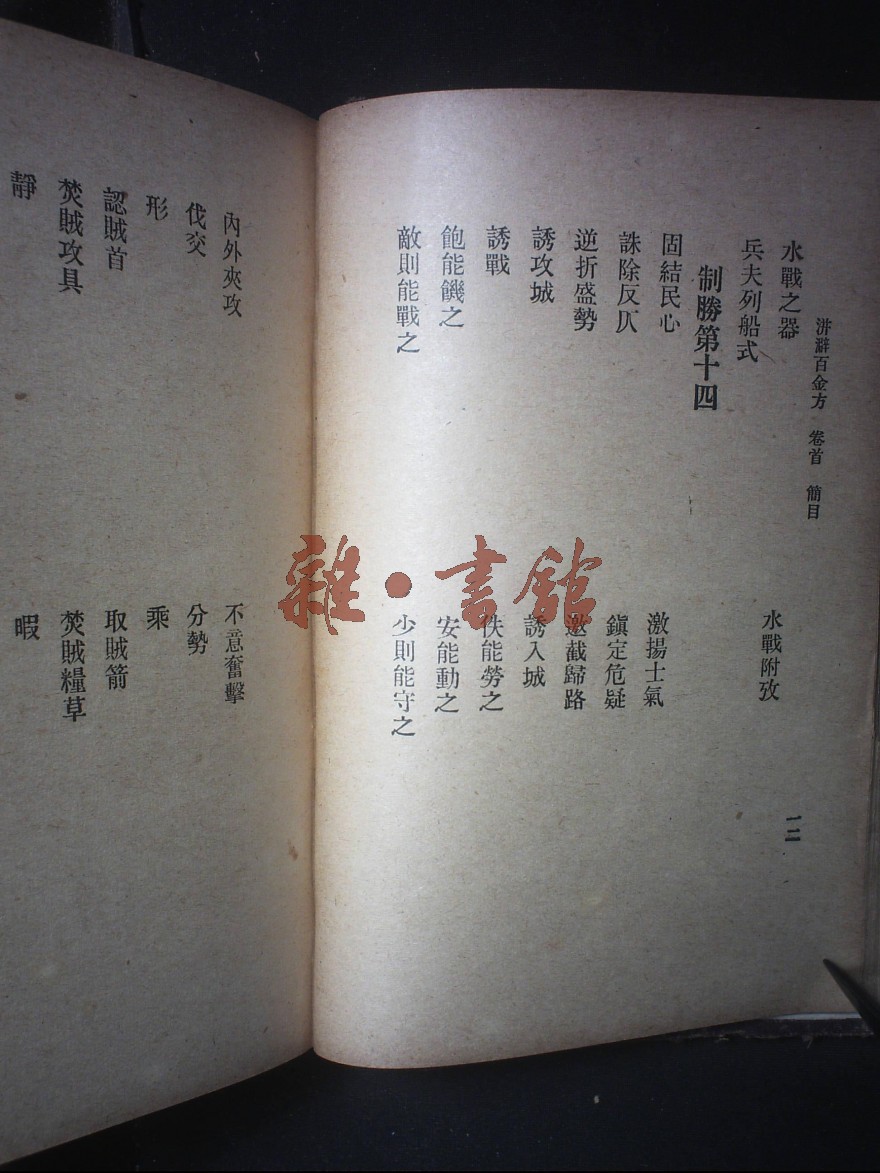 洴澼百金方 卷首 簡目
一二
水戰之器
水戰附攷
兵夫列船式
制勝第十四
固結民心
激揚士氣
誅除反仄
鎮定危疑
逆折盛勢
邀截歸路
誘攻城
誘入城
誘戰
佚能勞之
飽能饑之
安能動之
敵則能戰之
少則能守之
內外夾攻
不意奮擊
伐交
分勢
形
乘
認賊首
取賊箭
焚賊攻具
焚賊糧草
靜
暇
雜·書館